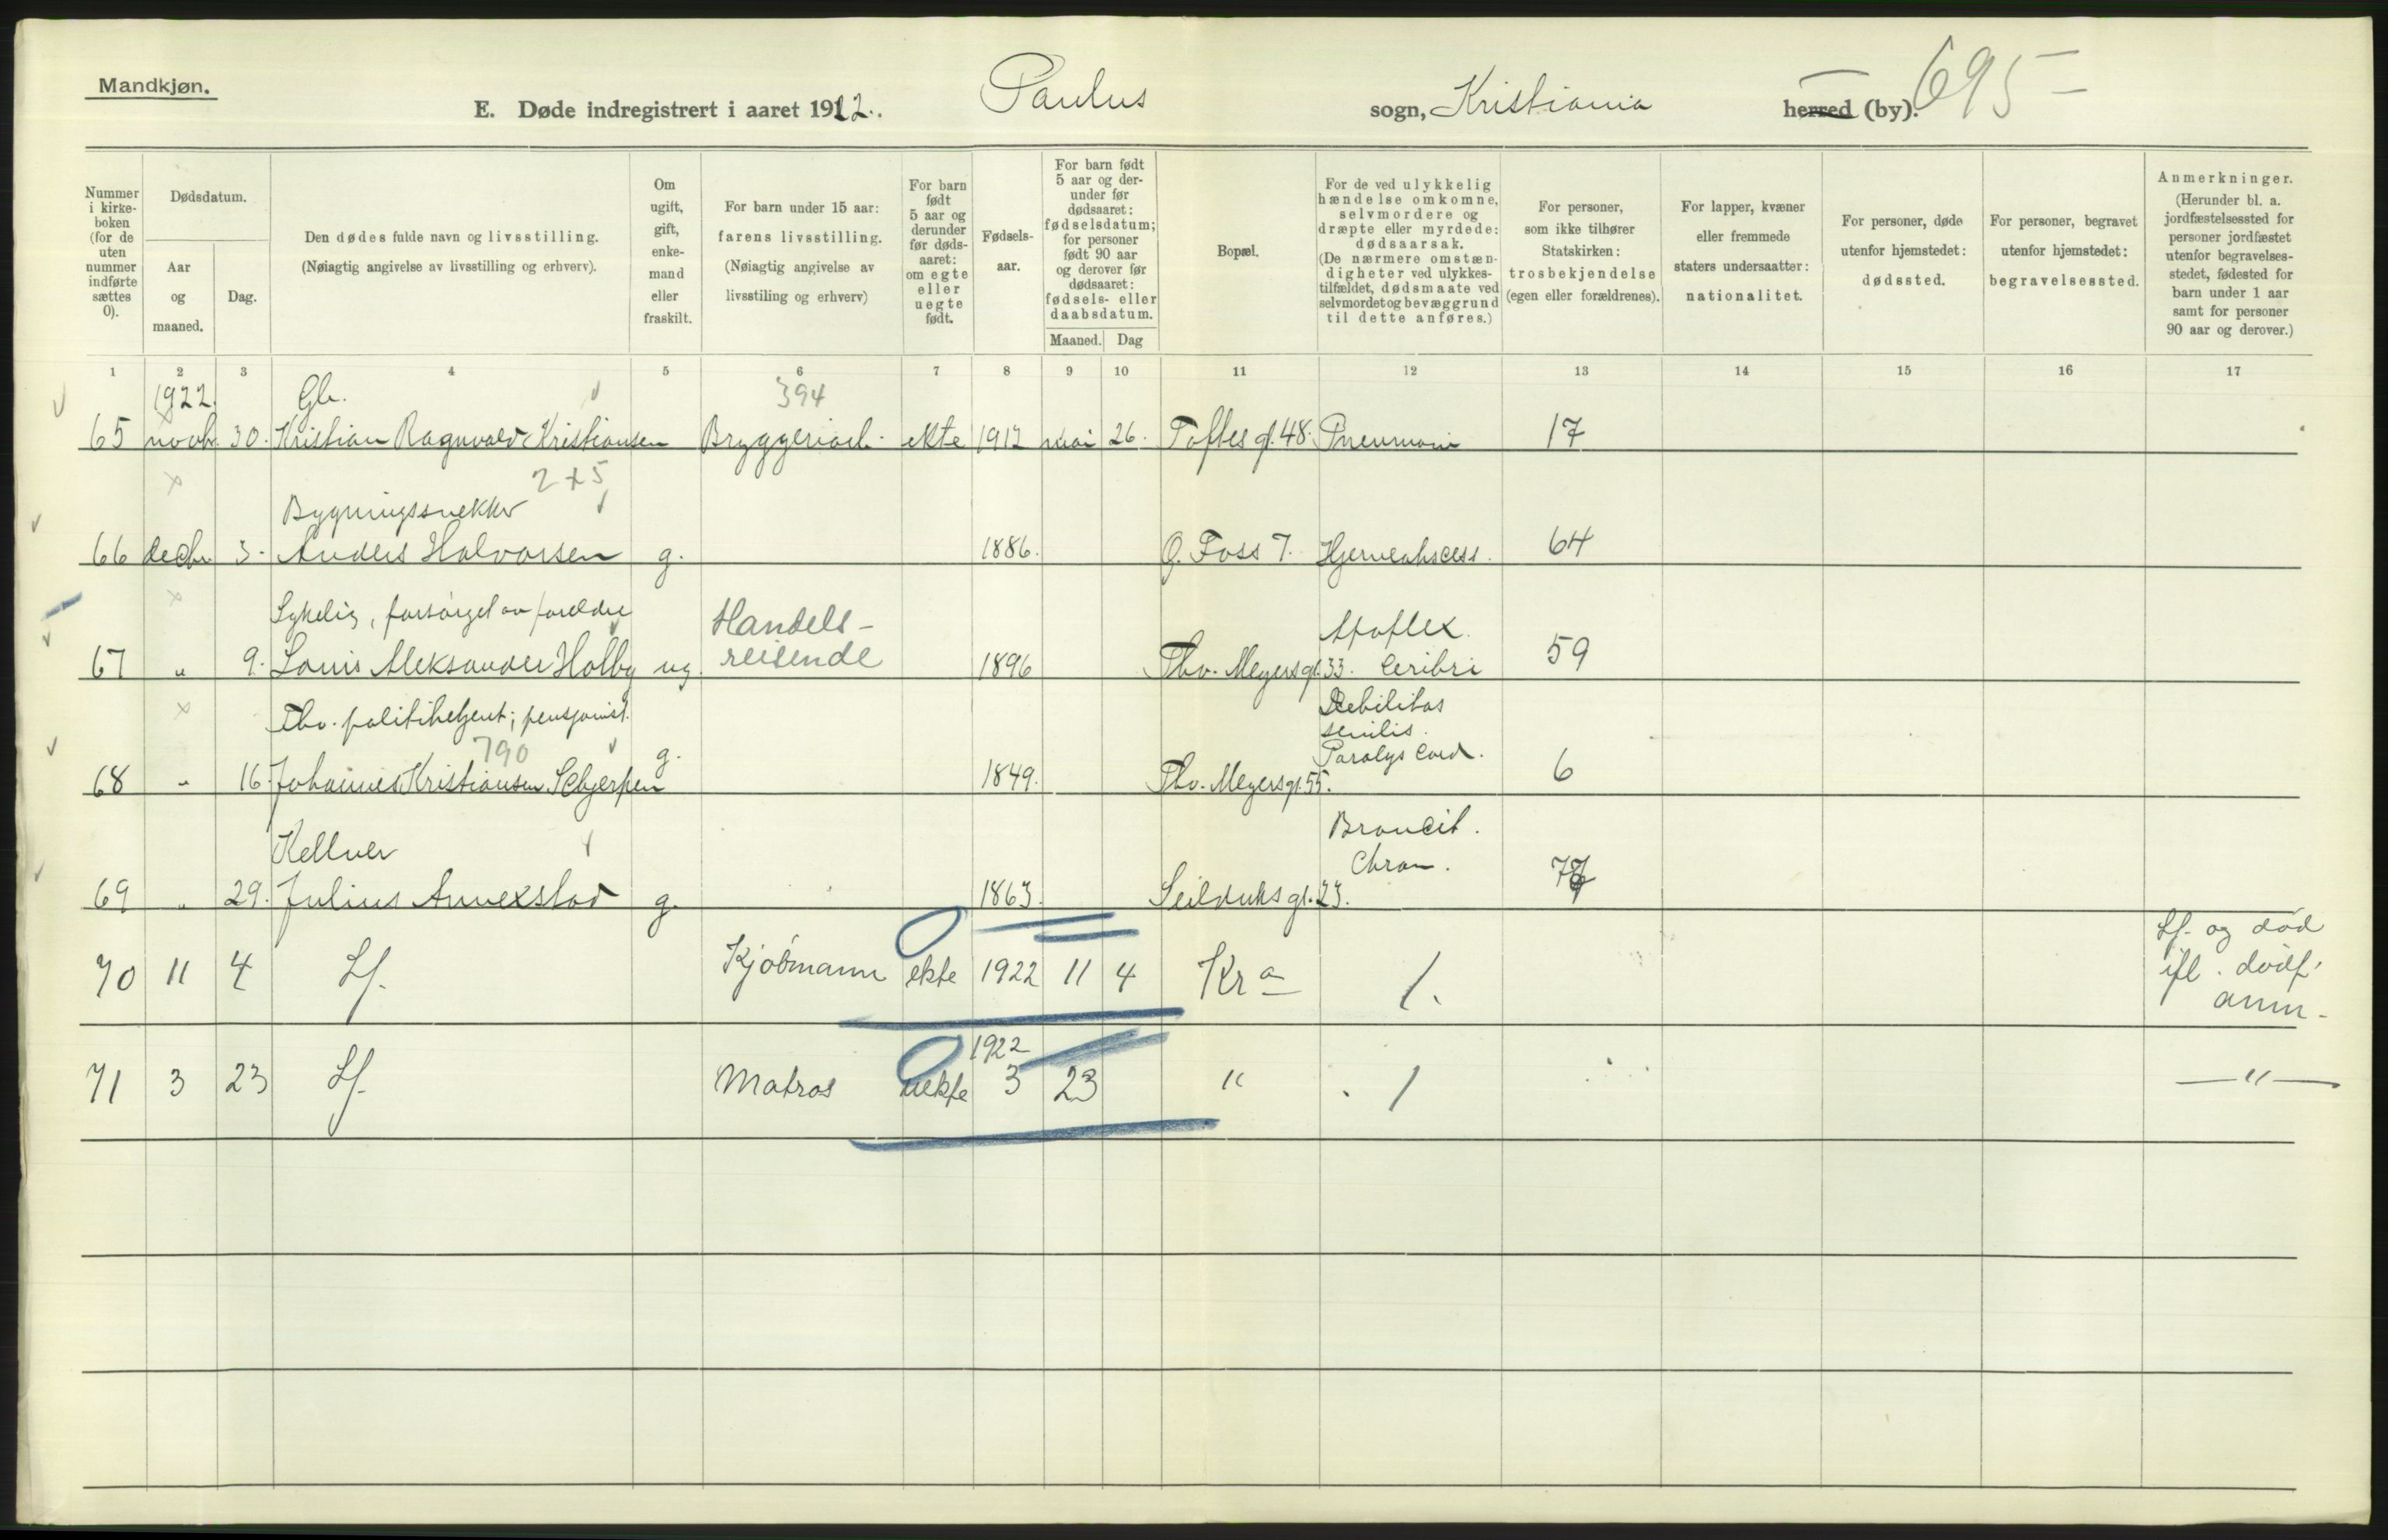 Mandkjøn.
E. Døde indregistrert i aaret 1922. Paulus sogn, Kristiania herred (by). 695
Nummer i kirkeboken (for de uten nummer indførte sættes 0).
Dødsdatum.
Aar og maaned.
Dag.
Den dødes fulde navn og livsstilling.
(Nøiagtig angivelse av livsstilling og erhverv).
Om ugift, gift, enkemand eller fraskilt.
For barn under 15 aar:
farens livsstilling.
(Nøiagtig angivelse av livsstiling og erhverv)
For barn født 5 aar og derunder før dødsaaret: om egte eller uegte født.
Fødselsaar.
For barn født 5 aar og derunder før dødsaaret: fødselsdatum; for personer født 90 aar og derover før dødsaaret: fødsels- eller daabsdatum.
Maaned. Dag
Bopæl.
For de ved ulykkelig hændelse omkomne, selvmordere og dræpte eller myrdede: dødsaarsak.
(De nærmere omstændigheter ved ulykkestilfældet, dødsmaate ved selvmordet og bevæggrund til dette anføres.)
For personer, som ikke tilhører Statskirken: trosbekjendelse (egen eller forældrenes).
For lapper, kvæner eller fremmede staters undersaatter: nationalitet.
For personer, døde utenfor hjemstedet: dødssted.
For personer, begravet utenfor hjemstedet: begravelsessted.
Anmerkninger.
(Herunder bl. a. jordfæstelsessted for personer jordfæstet utenfor begravelsesstedet, fødested for barn under 1 aar samt for personer 90 aar og derover.)
1 2 3 4 5 6 7 8 9 10 11 12 13 14 15 16 17
1922 Gb. 394
65 novb. 30. Kristian Ragnvald Kristiansen Bryggeriarb. ekte 1917 mai 26. Toftes gt. 48. Pneumoni 17
2 x 5
Bygningssnekker
66 decbr. 3. Anders Halvorsen g. 1886. Ø. Foss 7. Hjerneabscess. 64
Sykelig, forsørget av foreldre Handels- Apoplex.
67 " 9. Louis Aleksander Holby ug. reisende 1896 Thv. Meyersgt. 33. Ceribri 59
Debilitas
Fhv. politibetjent; pensjonist. senilis.
790 Paralys Cord.
68 " 16. Johannes Kristiansen Schjerpen g. 1849. Thv. Meyersgt. 55. 6
Kellner Broncit.
Chron.
69 " 29. Julius Annexstad g. 1863. Seilduksgt. 23. 77
Lf. og død
70 11 4 Lf. Kjøbmann ekte 1922 11 4 Kra 1. ifl. dødf.
anm.
1922
71 3 23 Lf. Matros uekte 3 23 " 1 — " —